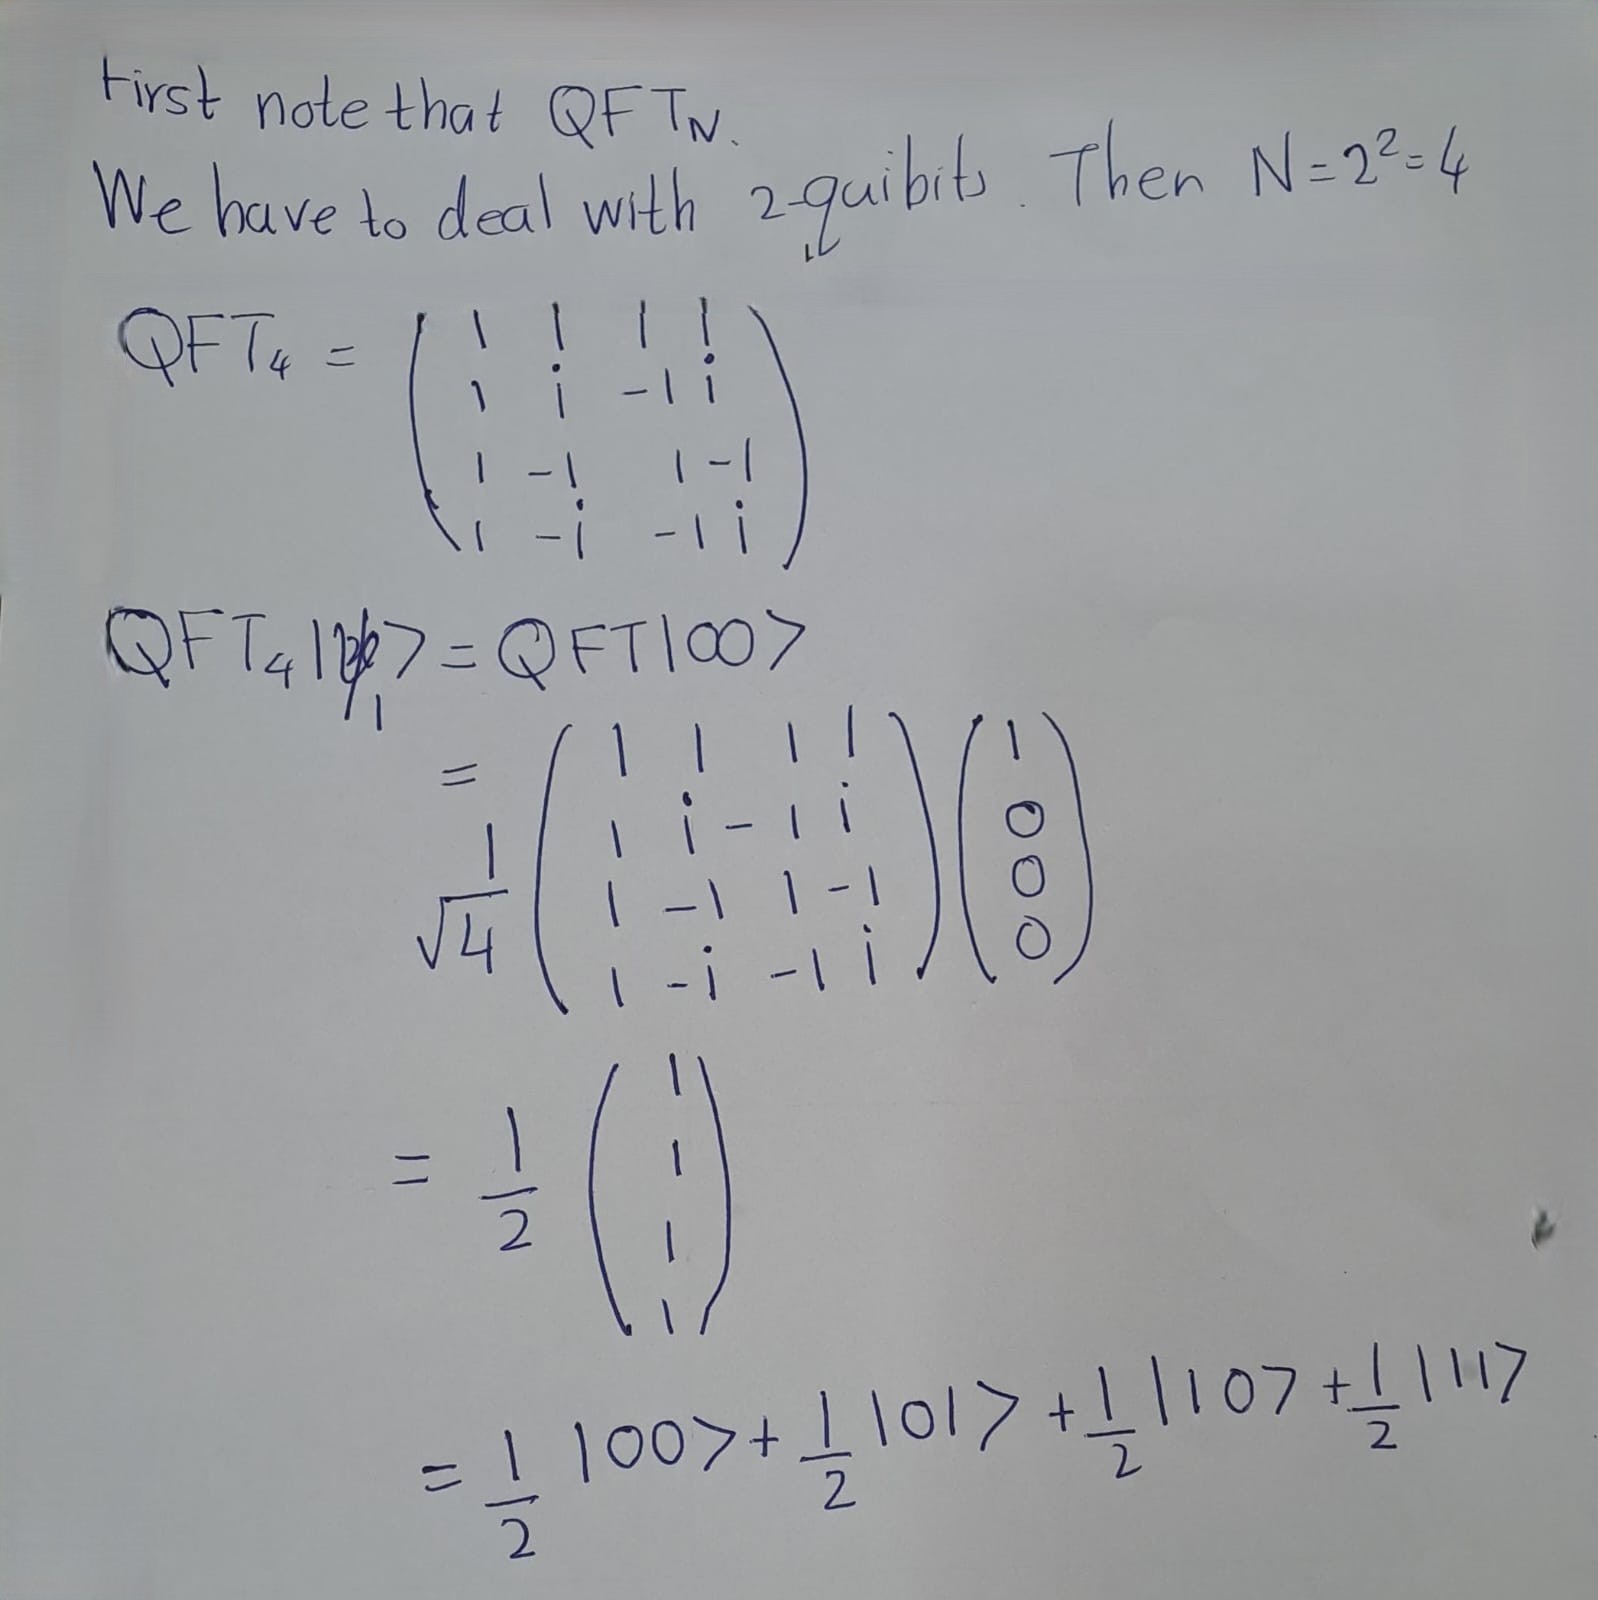 First note that QFT_N.
We have to deal with 2-quibits. Then N=2²=4
QFT₄ = ( 1 1 1 1
1 i -1 i
1 -1 1 -1
1 -i -1 i )
QFT₄ | ₁> = QFT|00>
= 1/√4 ( 1 1 1 1 ) ( 1 )
( 1 i -1 i ) ( 0 )
( 1 -1 1 -1 ) ( 0 )
( 1 -i -1 i ) ( 0 )
= 1/2 ( 1
1
1
1 )
= 1/2 |00> + 1/2 |01> + 1/2 |10> + 1/2 |11>